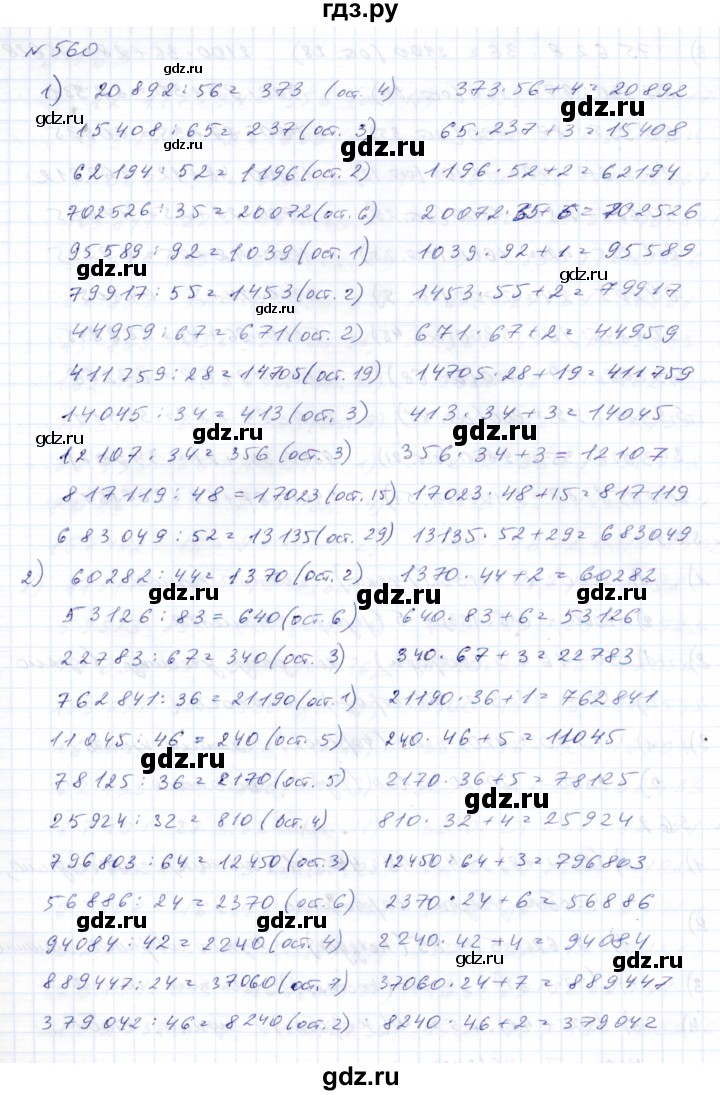 гдз.ру
№560
gdz.ru
1) 20892:56=373 (ост. 4) 373·56+4=20892
gdz.ru gdz.ru
15408:65=237(ост. 3) 65·237+3=15408
gdz.ru gdz.ru gdz.ru
62194:52=1196(ост. 2) 1196·52+2=62194
702526:35=20072(ост. 6) 20072·35+6=702526
95589:92=1039(ост. 1) 1039·92+1=95589
gdz.ru gdz.ru
79917:55=1453(ост. 2) 1453·55+2=79917
gdz.ru
44959:67=671(ост. 2) 671·67+2=44959
411759:28=14705(ост. 19) 14705·28+19=411759
14045:34=413(ост. 3) 413·34+3=14045
gdz.ru gdz.ru gdz.ru
12107:34=356(ост. 3) 356·34+3=12107
817119:48=17023(ост. 15) 17023·48+15=817119
683049:52=13135(ост. 29) 13135·52+29=683049
2) 60282:44=1370(ост. 2) 1370·44+2=60282
gdz.ru gdz.ru gdz.ru
53126:83=640(ост. 6) 640·83+6=53126
22783:67=340(ост. 3) 340·67+3=22783
762841:36=21190(ост. 1) 21190·36+1=762841
11045:46=240(ост. 5) 240·46+5=11045
gdz.ru
78125:36=2170(ост. 5) 2170·36+5=78125
gdz.ru
25924:32=810(ост. 4) 810·32+4=25924
796803:64=12450(ост. 3) 12450·64+3=796803
56886:24=2370(ост. 6) 2370·24+6=56886
gdz.ru gdz.ru
94084:42=2240(ост. 4) 2240·42+4=94084
gdz.ru gdz.ru
889447:24=37060(ост. 7) 37060·24+7=889447
379042:46=8240(ост. 2) 8240·46+2=379042
gdz.ru